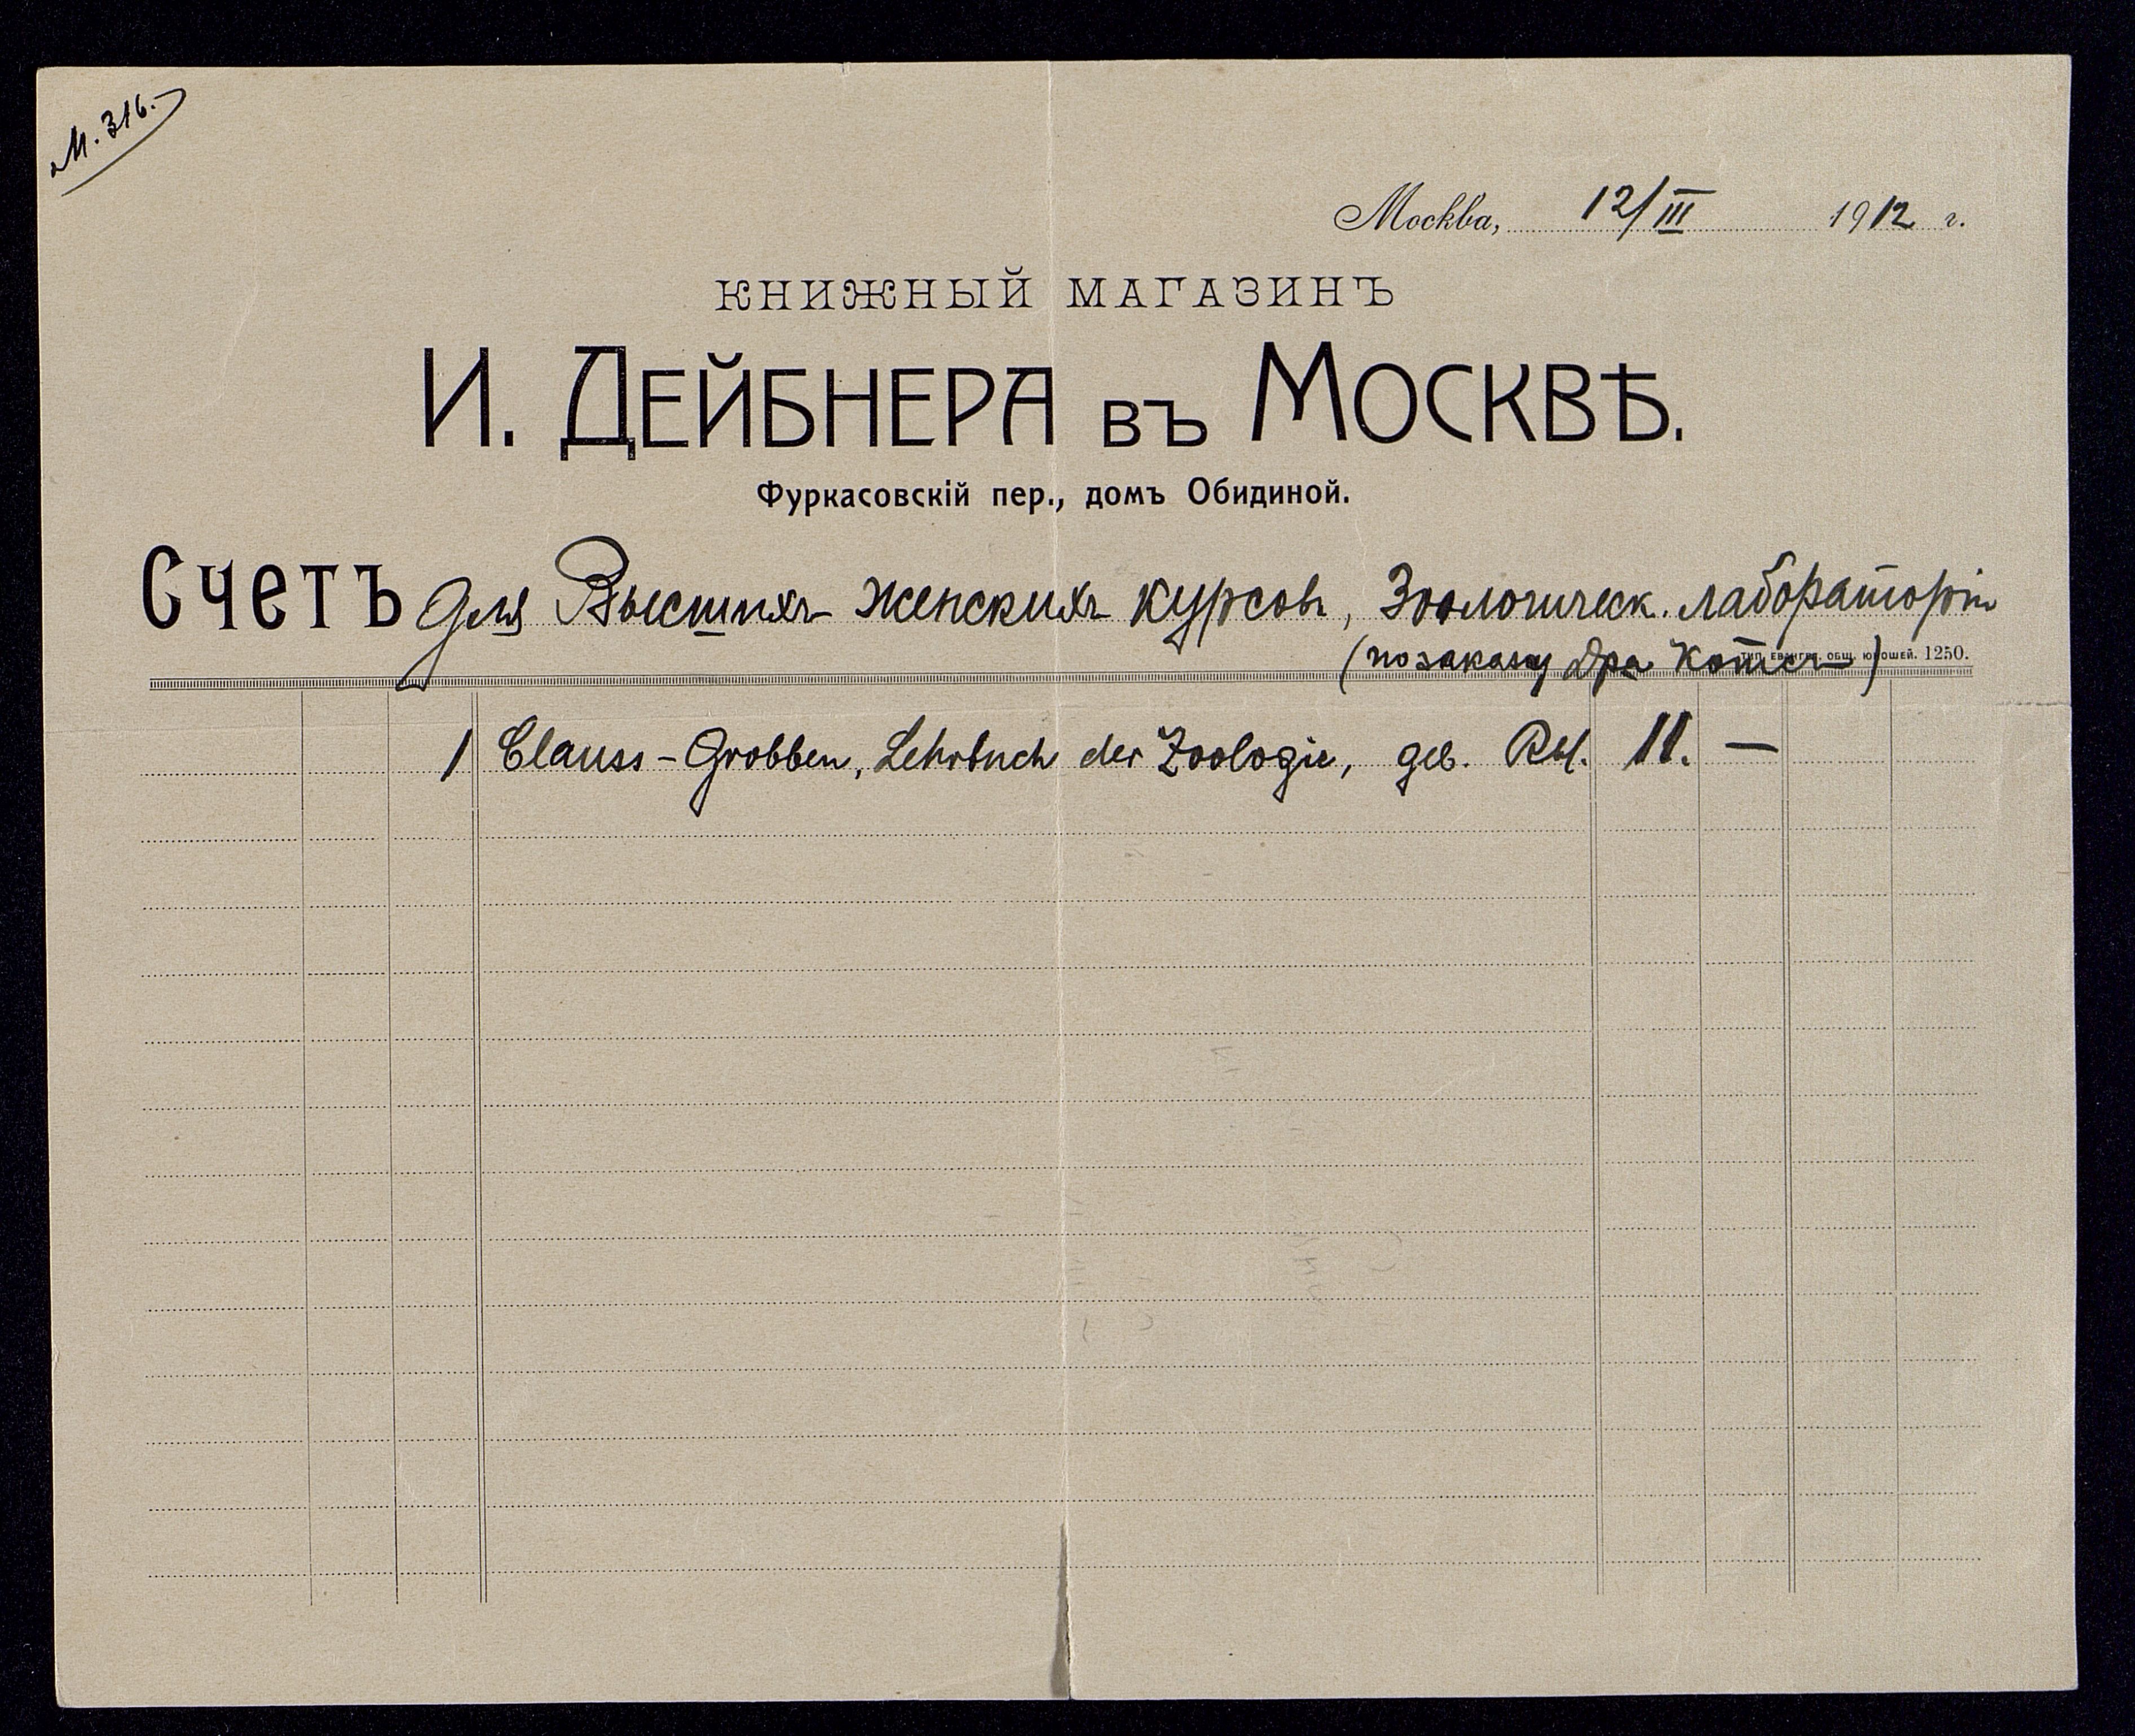 М. 316.
Москва, 12/III 1912 г.
КНИЖНЫЙ МАГАЗИНЪ
И. ДЕЙБНЕРА въ МОСКВѢ.
Фуркасовскій пер., домъ Обидиной.
Счетъ для Высшихъ женскихъ курсовъ, Зоологическ. лабораторіи
(по заказу Дра Котсъ)
ТИП. ЕВАНГЕЛ. ОБЩ. ЮНОШЕЙ. 1250.
1 Clauss-Grobben, Lehrbuch der Zoologie, geb. Rbl. 11. —